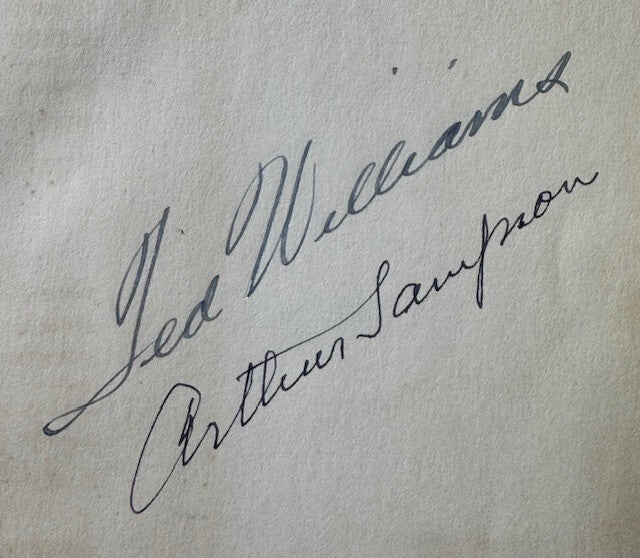 Ted Williams
Arthur Sampson